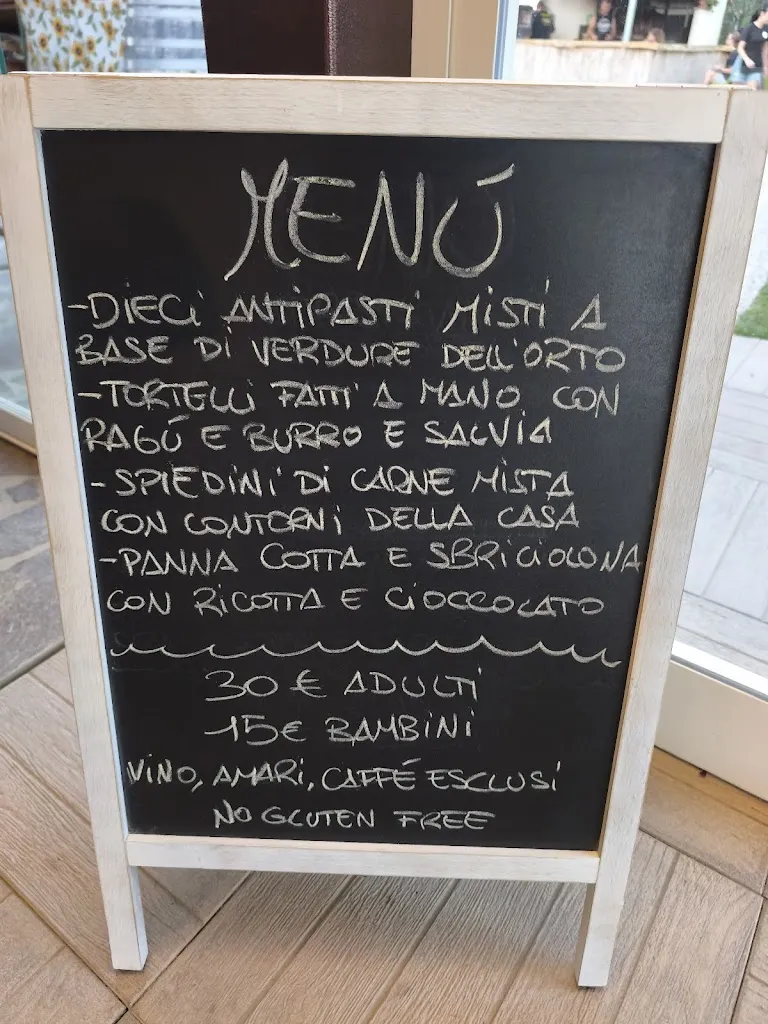 MENÚ
-DIECI ANTIPASTI MISTI A
BASE DI VERDURE DELL'ORTO
-TORTELLI FATTI A MANO CON
RAGÚ E BURRO E SALVIA
-SPIEDINI DI CARNE MISTA
CON CONTORNI DELLA CASA
-PANNA COTTA E SBRICIOLONA
CON RICOTTA E CIOCCOLATO
30 € ADULTI
15€ BAMBINI
VINO, AMARI, CAFFÉ ESCLUSI
NO GLUTEN FREE